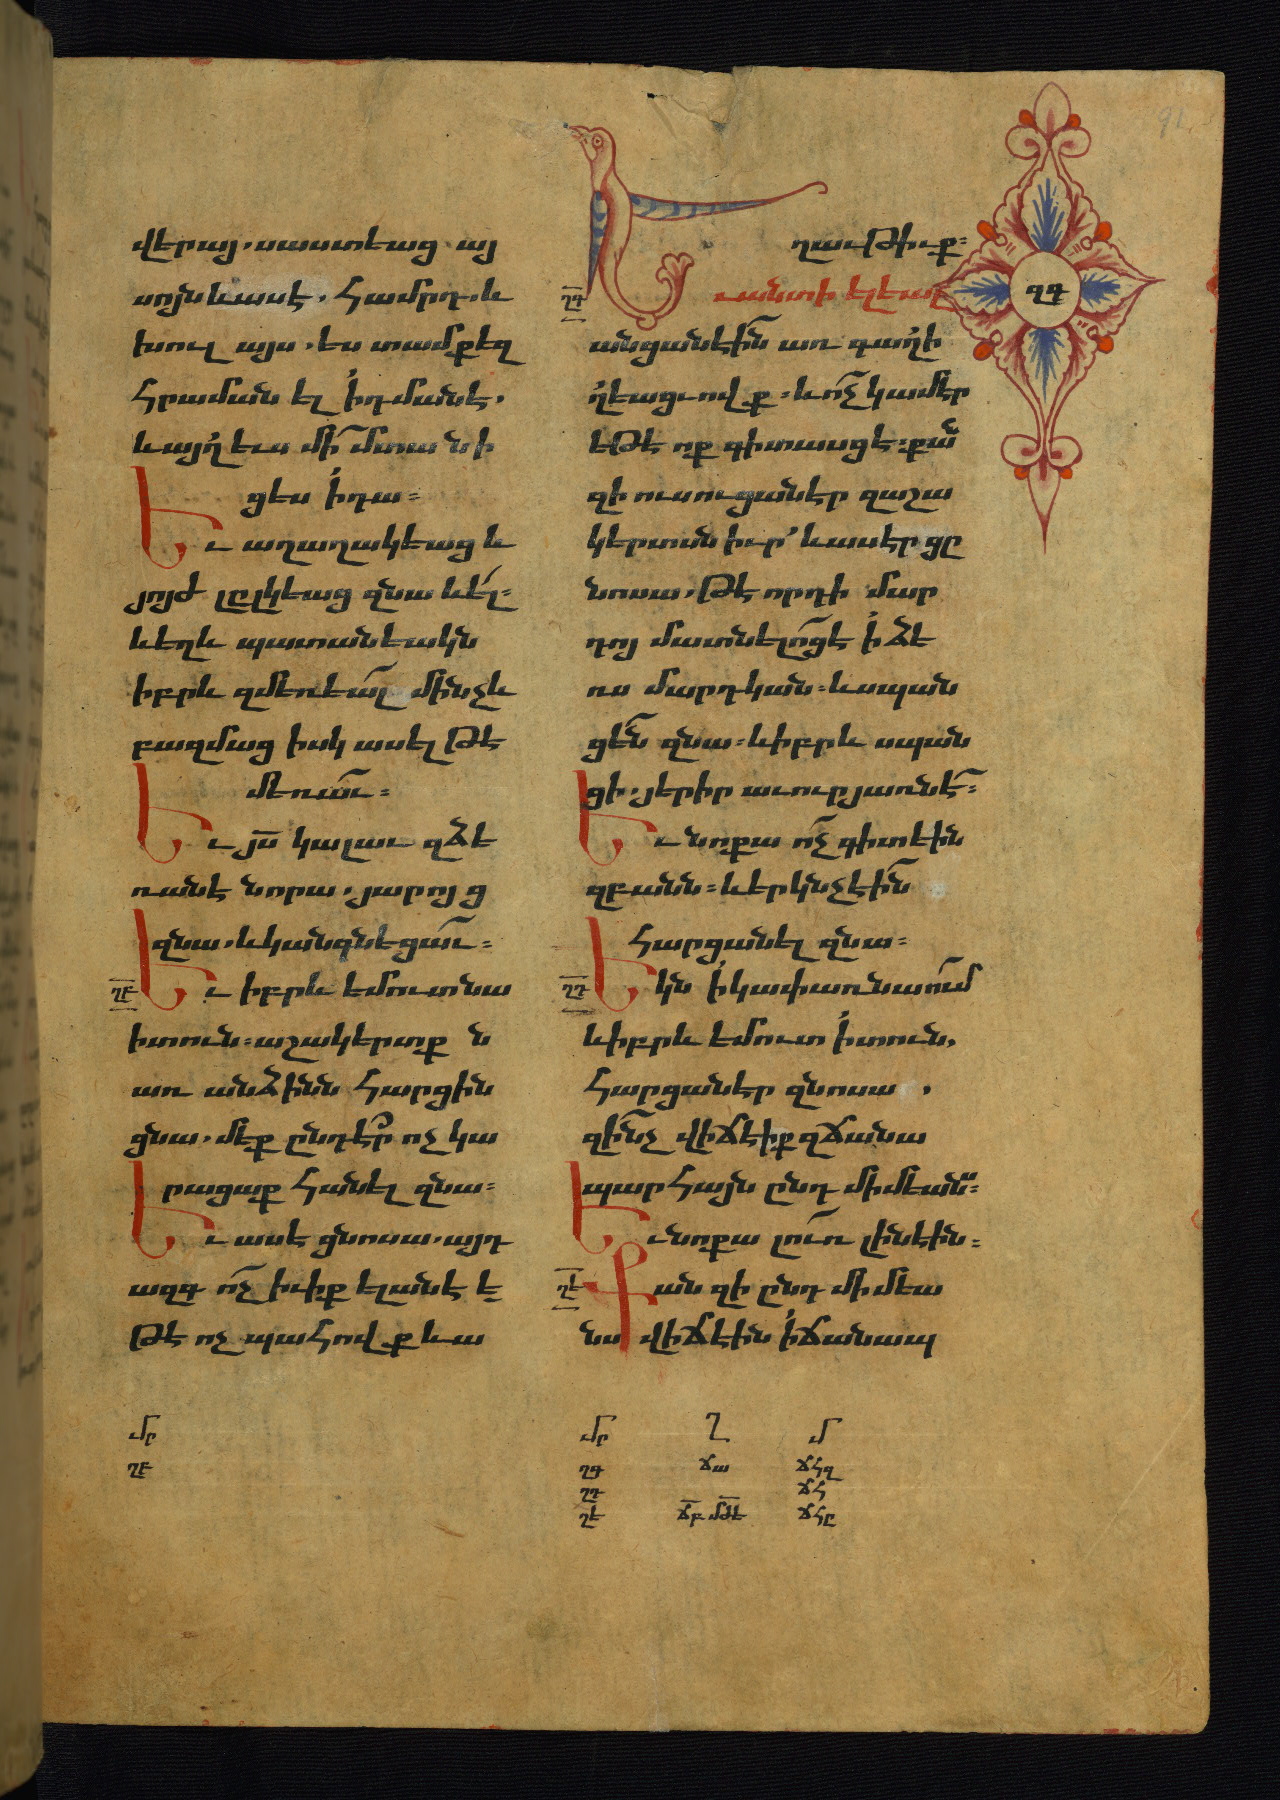 վերայ. սաստեաց այ
սոյն և ասէ. համրդ. և
խուլ այս. ես տամ քեզ
հրաման ել ի դմանէ.
և այլ ևս մի մտանի
ցես ի դա։
Եւ աղաղակեաց և
յոյժ լըլկեաց զնա և ել։
և եղև պատանեակն
իբրև զմեռեալ մինչև
բազմաց իսկ ասել թէ
մեռաւ։
Եւ յս կալաւ զձե
ռանէ նորա. յարոյց
զնա. և կանգնեցաւ։
ՂԲ
Եւ իբրև եմուտ նա
ի տուն։ աշակերտքն
առ անձինն հարցին
ցնա. մեք ընդէր ոչ կա
րացաք հանել զնա։
Եւ ասէ ցնոսա. այդ
ազգ ոչ իւիք ելանէ ե
թէ ոչ պահովք և ա
ղաւթիւք։
ՂԳ
Եւ անտի ելեալ
ԳԳ
անցանէին առ գաղի
ղեացւովք. և ոչ կամէր
եթէ ոք գիտասցէ։ քան
զի ուսուցանէր զաշա
կերտսն իւր՝ և ասէր ցը
նոսա. թէ որդի մար
դոյ մատնելոց է ի ձե
ռս մարդկան։ և սպան
ցեն զնա։ և իբրև սպան
ցի. յերիր աւուր յառնէ։
Եւ նոքա ոչ գիտէին
զբանն։ և երկնչէին
հարցանել զնա։
ՂԴ
Եկն ի կափառնաում
և իբրև եմուտ ի տուն.
հարցանէր զնոսա.
զինչ վիճէիք զճանա
պարհայն ընդ միմեանս։
Եւ նոքա լուռ լինէին։
ՂԵ
Քան զի ընդ միմեա
նս վիճէին ի ճանապ
մր
ՂԲ
մր Ղ մ
ՂԳ ճա ճհզ
ՂԴ ճհ
ՂԵ ճբ մթե ճհը